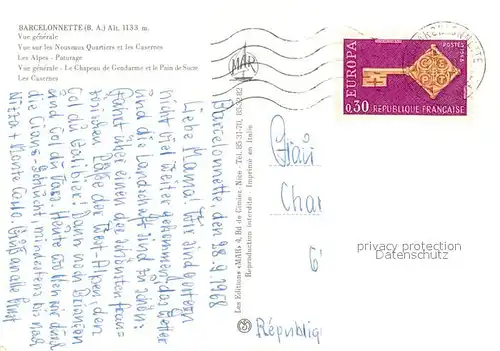 BARCELONNETTE (B. A.) Alt. 1133 m.
Vue générale
Vue sur les Nouveaux Quartiers et les Casernes
Les Alpes - Paturage
Vue générale - Le Chapeau de Gendarme et le Pain de Sucre
Les Casernes
MAR
EUROPA
POSTES 1968
CEPT
0,30 RÉPUBLIQUE FRANÇAISE
Barcelonnette, den 28.9.1968
Liebe Mama! Wir sind gestern
nicht viel weiter gekommen, das Wetter
und die Landschaft sind zu schön:
fährt über einen der schönsten fran-
zösischen Pässe der West-Alpen, den
Col du Galibier. Dann nach Briançon
und Col du Vars. Heute wollen wir durch
die Cians-Schlucht, mindestens bis nach
Nizza + Monte Carlo. Grüß an alle
Les Editions «MAR» 4, Bd de Cimiez, Nice - Tél. 85 31-70, 85 32 82
Reproduction interdite - Imprimé en Italie
Frau
Char
6
Républiq
privacy protection
Datenschutz